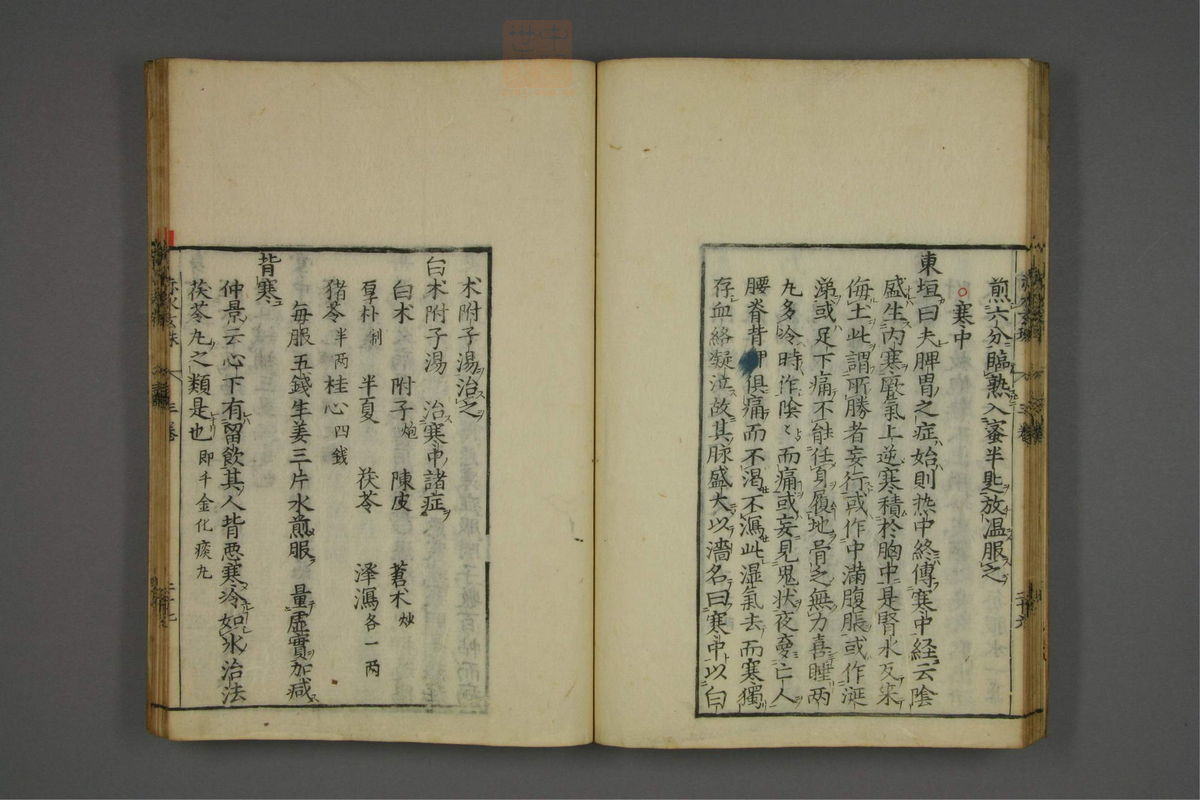 煎六分臨熟入蜜半匙放温服之
寒中
東垣曰夫脾胃之症始則热中終傳寒中経云陰
盛生内寒厥氣上逆寒積於胸中是腎水反来
侮土此謂所勝者妄行或作中滿腹脹或作涎
涕或足下痛不能任身履地骨乏無力喜睡两
丸多冷時作陰〻而痛或妄見鬼状夜夢亡人
腰脊背胛俱痛而不渴不瀉此湿氣去而寒獨
存血絡凝泣故其脉盛大以濇名曰寒中以白
术附子湯治之
白术附子湯 治寒中諸症
白术 附子炮 陳皮 蒼术炒
厚朴制 半夏 茯苓 澤瀉各一两
猪苓半两 桂心四銭
每服五錢生姜三片水煎服 量虚實加减
背寒
仲景云心下有留飲其人背悪寒冷如氷治法
茯苓丸之類是也即千金化痰丸